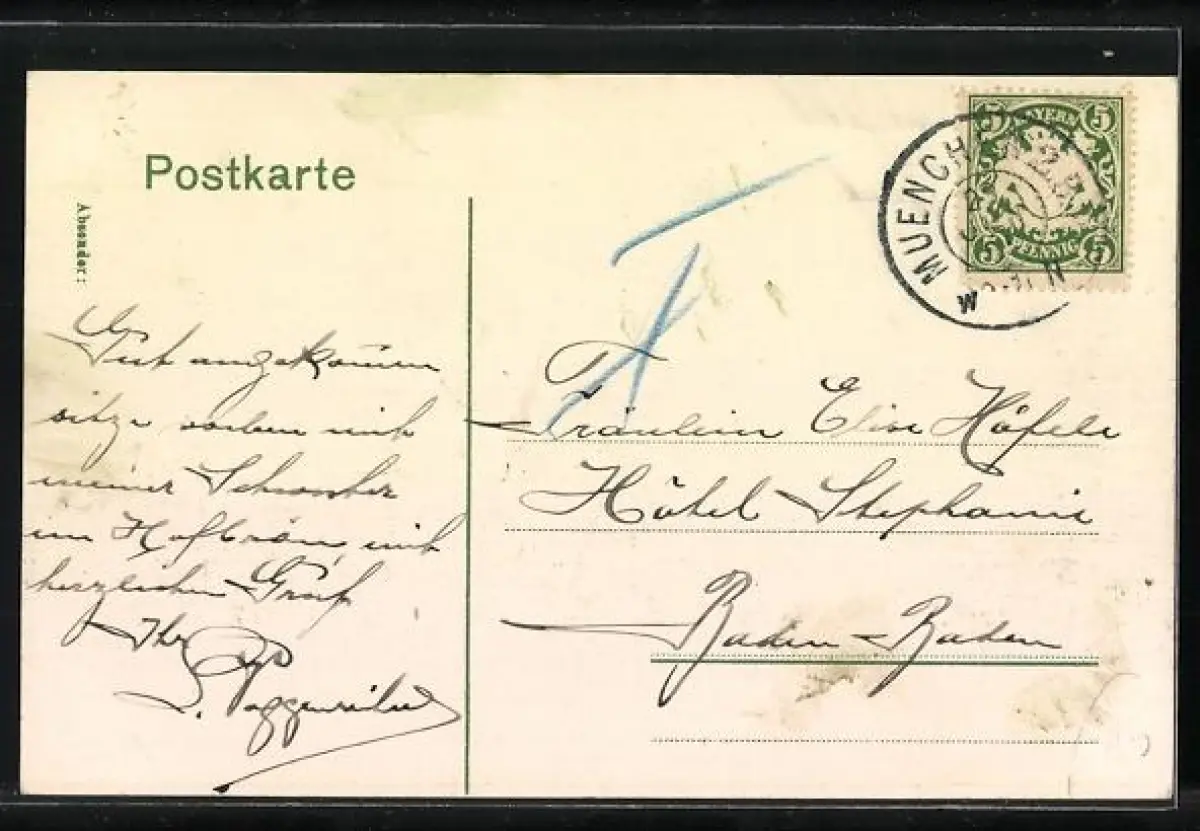 Postkarte
Absender:
Gut angekom̄en
sitze soeben mit
meiner Schwester
im Hofbräu, mit
herzlichen Gruß
Ihr
5 BAYERN 5
5 PFENNIG 5
MUENCHEN
W
Fräulein Elise Häfele
Hôtel Stephanie
Baden-Baden